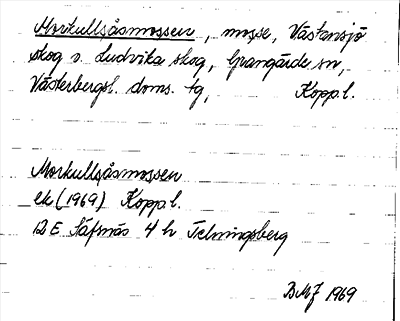 Morkullsåsmossen, mosse, Västansjö
skog o. Ludvika skog, Grangärde sn,
Västerbergsl. doms. tg, Kopp.l.
Morkullsåsmossen
ek (1969) Kopp.l.
12 E Säfsnäs 4 h Telningsberg
BMJ 1969